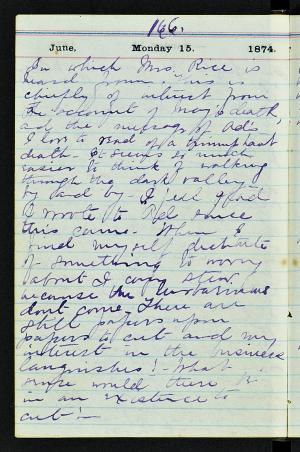 166.
June. Monday 15. 1874.
In which Mrs. Rice is
heard from. This is
chiefly of interest from
the account of May's death,
and the message of Ad's
I love to read of a triumphant
death. It seems so much
easier to think of walking
through the dark valley
by and by. I feel glad
I wrote to Ad since
this came. When I
find myself destitute
of something to worry
about I can stew
because the
dont come. There are
still papers upon
papers to cut and my
interest in the business
languishes! What
would there be
in an existence to
cut!